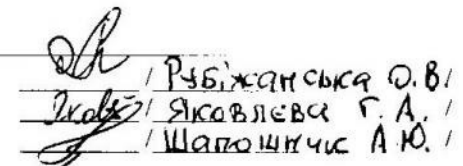 / Рубіжанська О.В/
/ Яковлева Г.А. /
/ Шапошник А.Ю. /